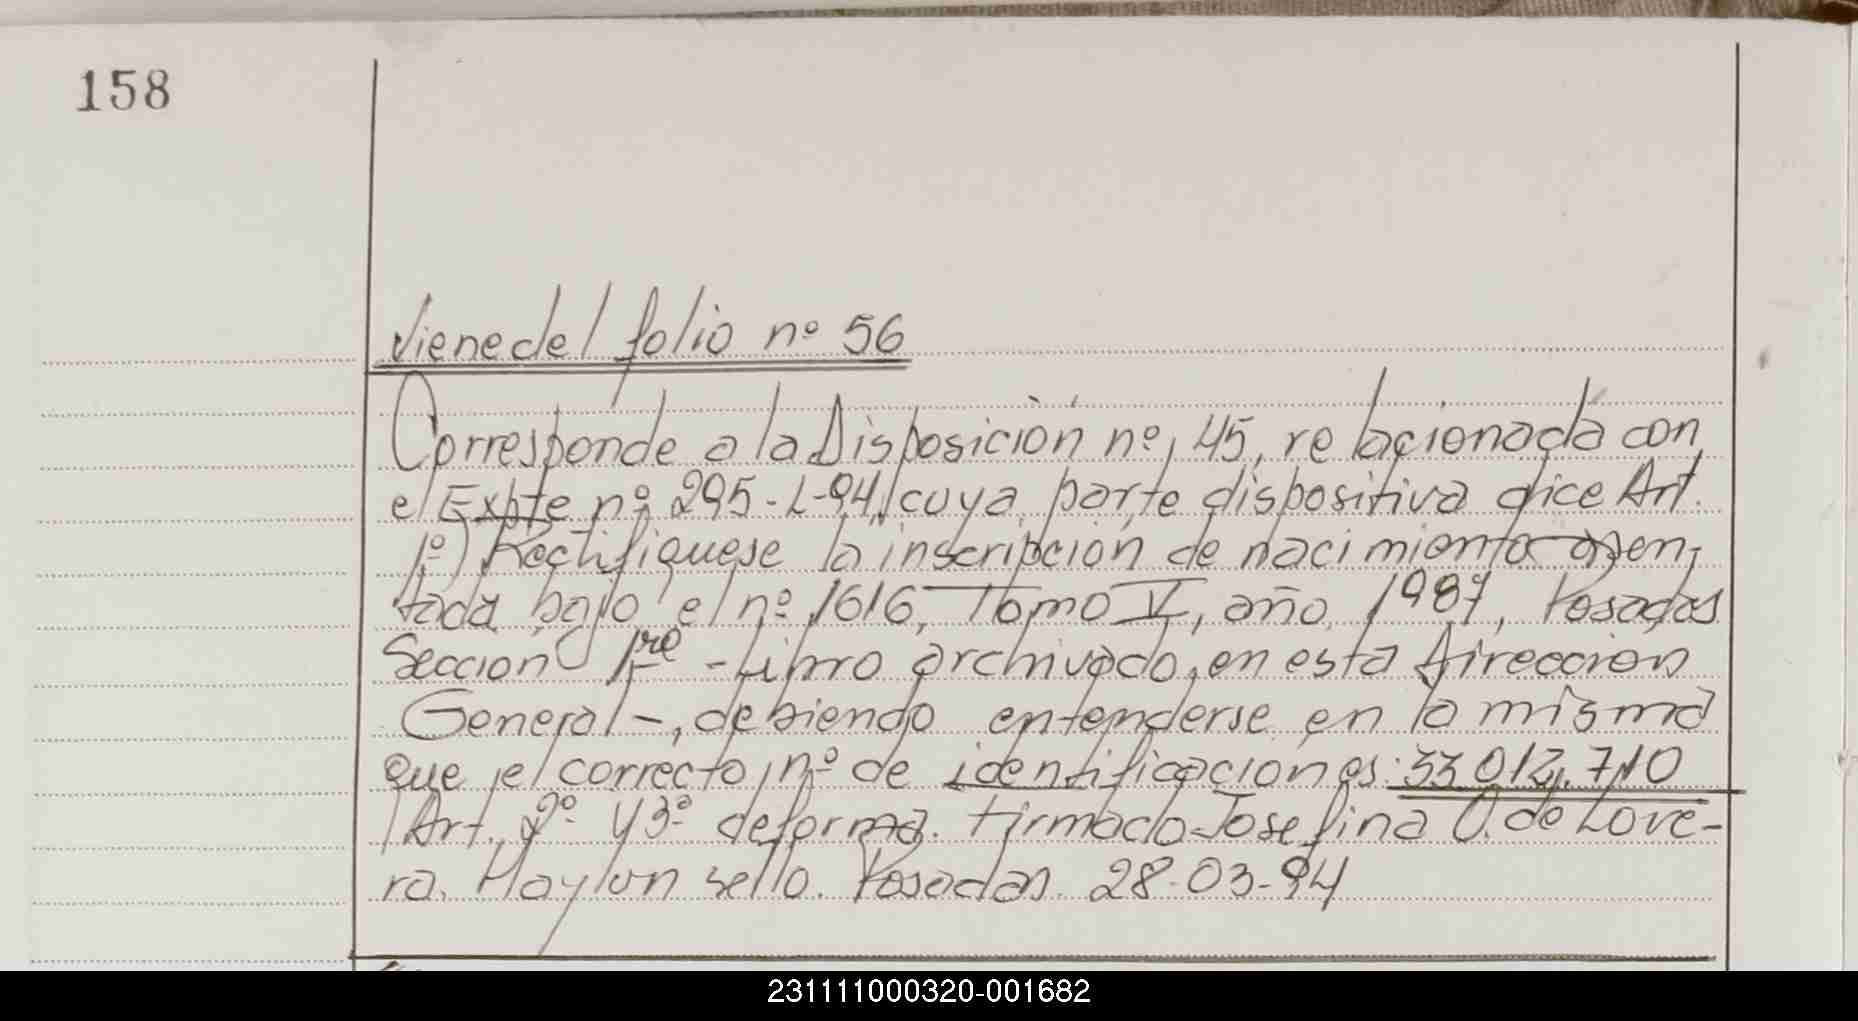 158
Viene del folio nº 56
Corresponde a la Disposición nº, 45, relacionada con
el Expte nº 295-L-94, cuya parte dispositiva dice Art.
1º) Rectifíquese la inscripción de nacimiento asen-
tada bajo el nº 1616, Tomo V, año 1987, Posadas
Seccion 1ra - Libro archivado en esta Direccion
General -, debiendo entenderse en la misma
que el correcto nº de identificacion es: 33.012.710
Art. 2º y 3º de forma. Firmado Josefina O. de Love-
ra. Hay un sello. Posadas. 28-03-94
231111000320-001682